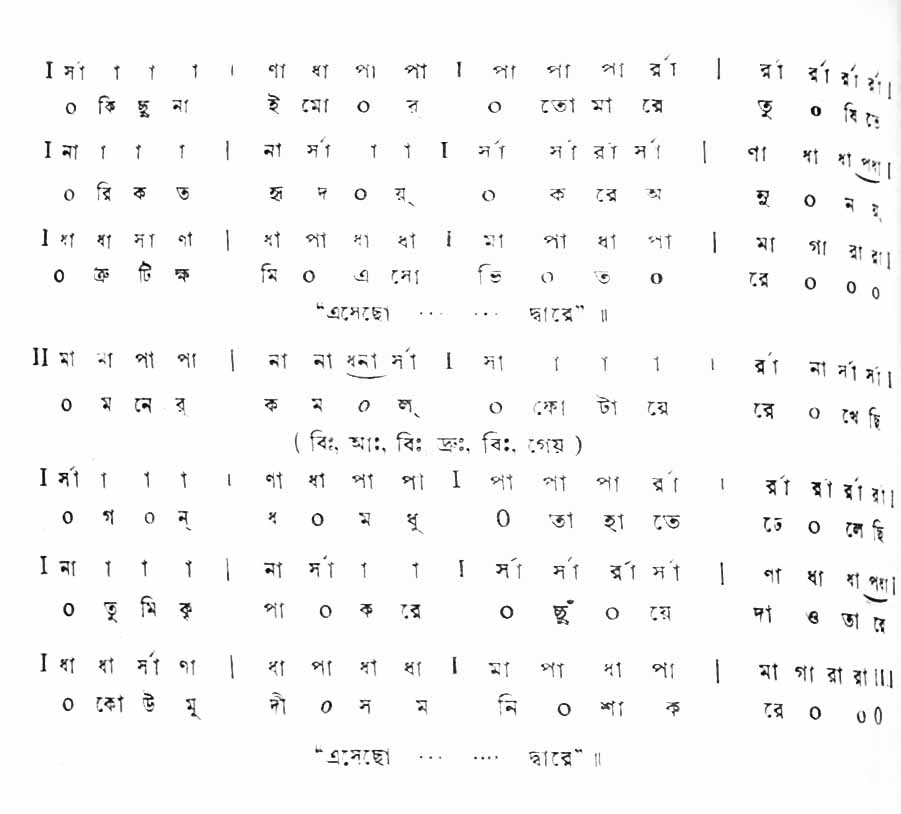 I র্সা া া া । ণা ধা পা পা I পা পা পা র্রা | র্রা র্রা র্রা র্রা |
০ কি ছু না ই মো ০ র ০ তো মা রে তু ০ ষি তে
I না া া া | না র্সা া া I র্সা র্সা র্রা র্সা | ণা ধা ধা পধা |
০ রি ক ত হৃ দ ০ য়্ ০ ক রে অ নু ০ ন য়্
I ধা ধা র্সা ণা | ধা পা ধা ধা I মা পা ধা পা | মা গা রা রা |
০ ত্রু টি ক্ষ মি ০ এ সো ভি ০ ত ০ রে ০ ০ ০
“এসেছো ... ... দ্বারে” ॥
II মা মা পা পা | না না ধনা র্সা I র্সা া া া । র্রা না র্সা র্সা |
০ ম নে র্ ক ম ০ ল্ ০ ফো টা য়ে রে ০ খে ছি
( বিঃ, আঃ, বিঃ দ্রুঃ, বিঃ, গেয় )
I র্সা া া া । ণা ধা পা পা I পা পা পা র্রা । র্রা র্রা র্রা র্রা |
০ গ ০ ন্ ধ ০ ম ধু ০ তা হা তে ঢে ০ লে ছি
I না া া া | না র্সা া া I র্সা র্সা র্রা র্সা | ণা ধা ধা পধা |
০ তু মি কৃ পা ০ ক রে ০ ছুঁ ০ য়ে দা ও তা রে
I ধা ধা র্সা ণা | ধা পা ধা ধা I মা পা ধা পা | মা গা রা রা III
০ কো উ মু দী ০ স ম নি ০ শা ক রে ০ ০ ০
“এসেছো ... .... দ্বারে” ॥